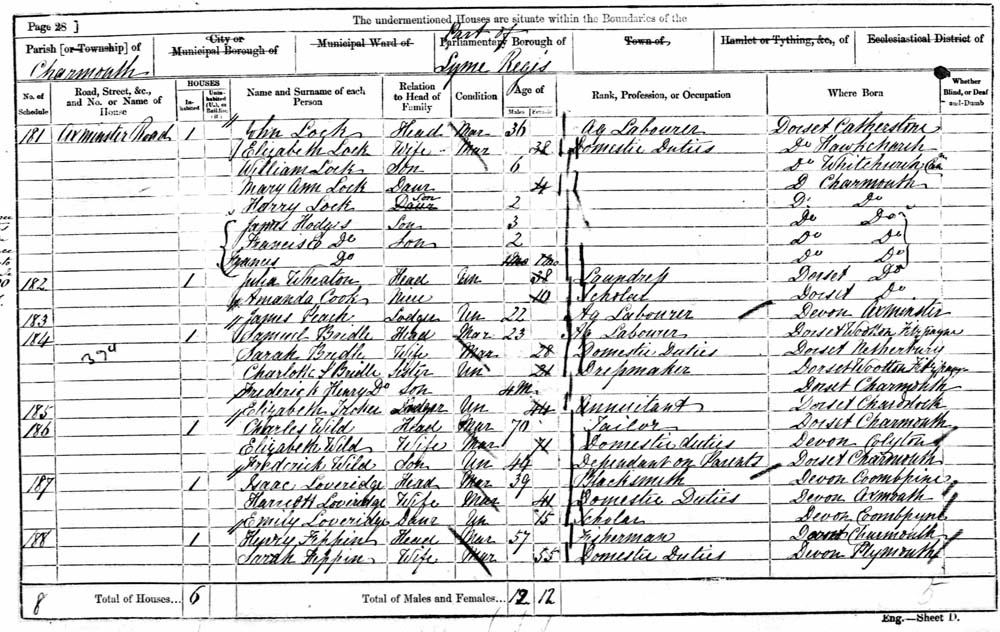 The undermentioned Houses are situate within the Boundaries of the
Page 28 ]
Parish [or Township] of Charmouth
City or Municipal Borough of
Municipal Ward of
Part of Parliamentary Borough of Lyme Regis
Town of
Hamlet or Tything, &c., of
Ecclesiastical District of
No. of Schedule
Road, Street, &c., and No. or Name of House
HOUSES
Inhabited
Uninhabited (U.), or Building (B.)
Name and Surname of each Person
Relation to Head of Family
Condition
Age of
Males
Females
Rank, Profession, or Occupation
Where Born
Whether Blind, or Deaf-and-Dumb
181 Axminster Road 1 John Lock Head Mar 36 Ag Labourer Dorset Catherstone
Elizabeth Lock Wife Mar 38 Domestic Duties Do Hawkchurch
William Lock Son 6 Do Whitchurch
Mary Ann Lock Daur 4 D Charmouth
Harry Lock Daur Son 2 Do Do
James Hodges Son 3 Do Do
Do Son 2 Do Do
Francis Do Do Do
182 1 Julia Wheaton Head Un 38 Laundress Dorset Do
Amanda Cook Niece 10 Scholar Dorset Do
183 James Lodger Un 22 Ag Labourer Devon Axminster
184 1 Samuel Bridle Head Mar 23 Ag Labourer Dorset Wootton Fitzpayne
Sarah Bridle Wife Mar 28 Domestic Duties Dorset Netherbury
Charlotte S Bridle Sister Un 21 Dressmaker Dorset Wootton Fitzpayne
Frederick Henry Do Son 4 M Dorset Charmouth
185 Elizabeth Lodger Un 44 Annuitant Dorset Chardstock
186 1 Charles Wild Head Mar 70 Tailor Dorset Charmouth
Elizabeth Wild Wife Mar 71 Domestic duties Devon Colyton
Frederick Wild Son Un 44 Dependant on Parents Dorset Charmouth
187 1 Isaac Loveridge Head Mar 39 Blacksmith Devon Coombpine
Harriett Loveridge Wife Mar 41 Domestic Duties Devon Axmouth
Emily Loveridge Daur Un 15 Scholar Devon Coombpyne
188 1 Henry Head Mar 57 Fisherman Dorset Charmouth
Sarah Wife Mar 55 Domestic Duties Devon Plymouth
8 Total of Houses... 6 Total of Males and Females... 12 12
Eng.—Sheet D.